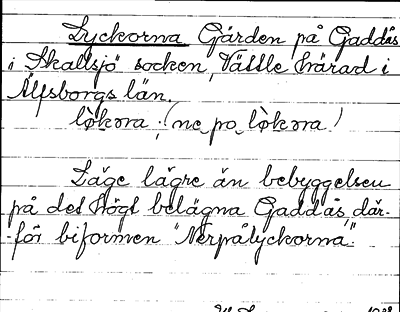 Lyckorna Gården på Gaddås
i Skallsjö socken, Vättle härad i
Älfsborgs län.
lo̱kɔra : / ne po lo̱kɔra /
Läge lägre än bebyggelsen
på det högt belägna Gaddås, där-
-för biformen "Nerpålyckorna".